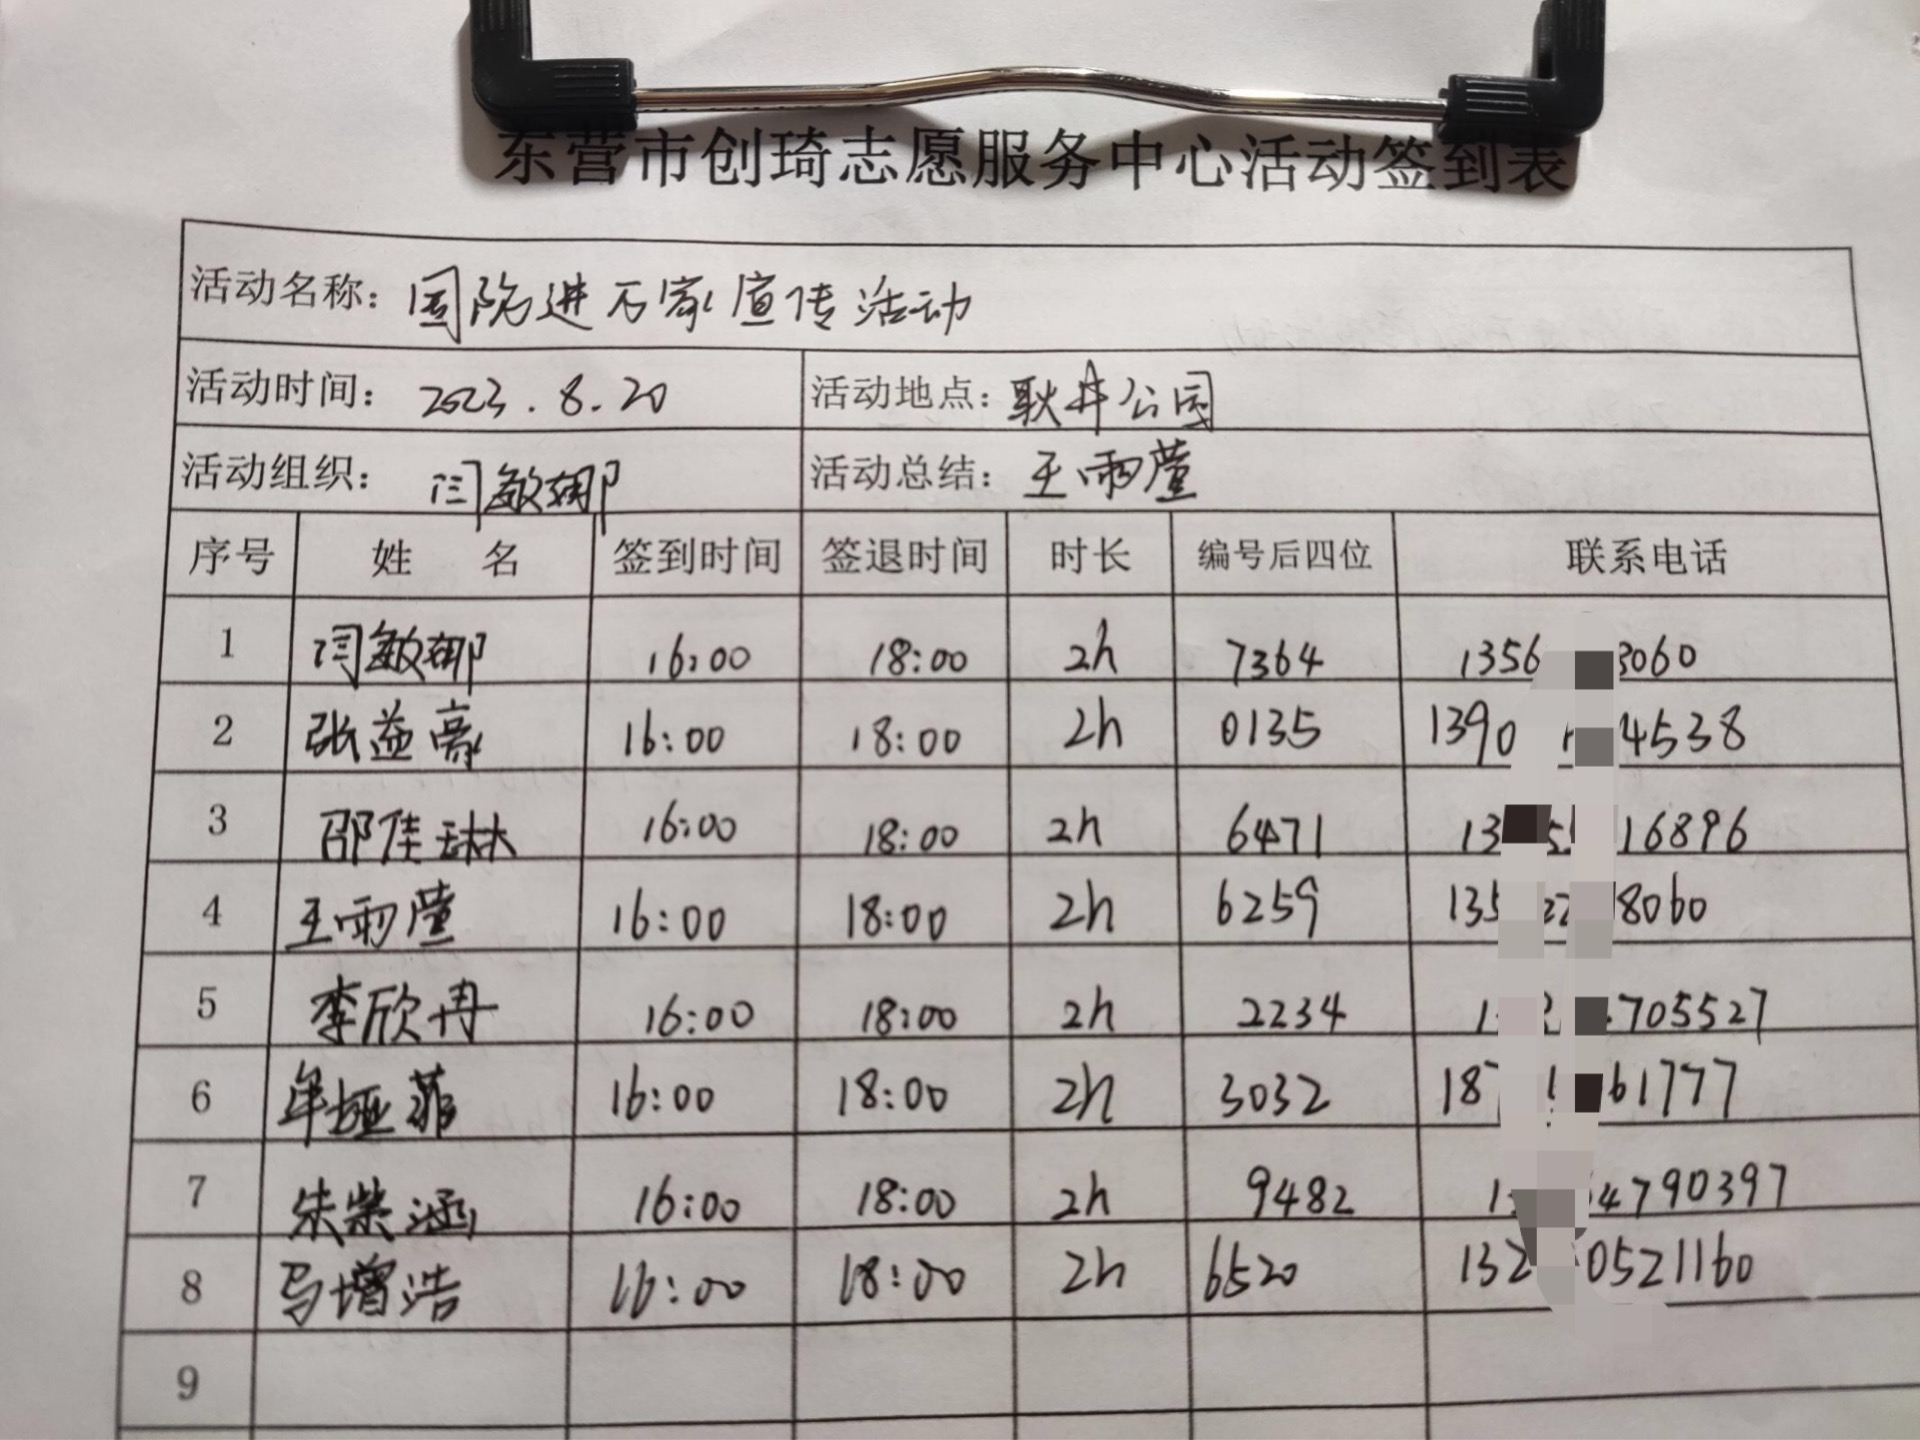 东营市创琦志愿服务中心活动签到表
活动名称：国防进万家宣传活动
活动时间：2023.8.20 活动地点：耿井公园
活动组织：闫敏娜 活动总结：王雨萱
序号 姓 名 签到时间 签退时间 时长 编号后四位 联系电话
1 闫敏娜 16:00 18:00 2h 7364 1356 3060
2 张益豪 16:00 18:00 2h 0135 1390 4538
3 邵佳琳 16:00 18:00 2h 6471 13 16896
4 王雨萱 16:00 18:00 2h 6259 135 22 8060
5 李欣冉 16:00 18:00 2h 2234 1 705527
6 牟垭菲 16:00 18:00 2h 3032 187 61777
7 朱紫涵 16:00 18:00 2h 9482 1 4790397
8 马增浩 16:00 18:00 2h 6520 132 0521160
9